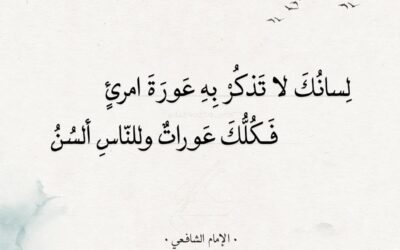 لِسانُكَ لا تَذكُرْ بِهِ عَورَةَ امرئٍ
فَكُلُّكَ عَوراتٌ وللنّاسِ ألسُنُ
• الإمام الشافعي •